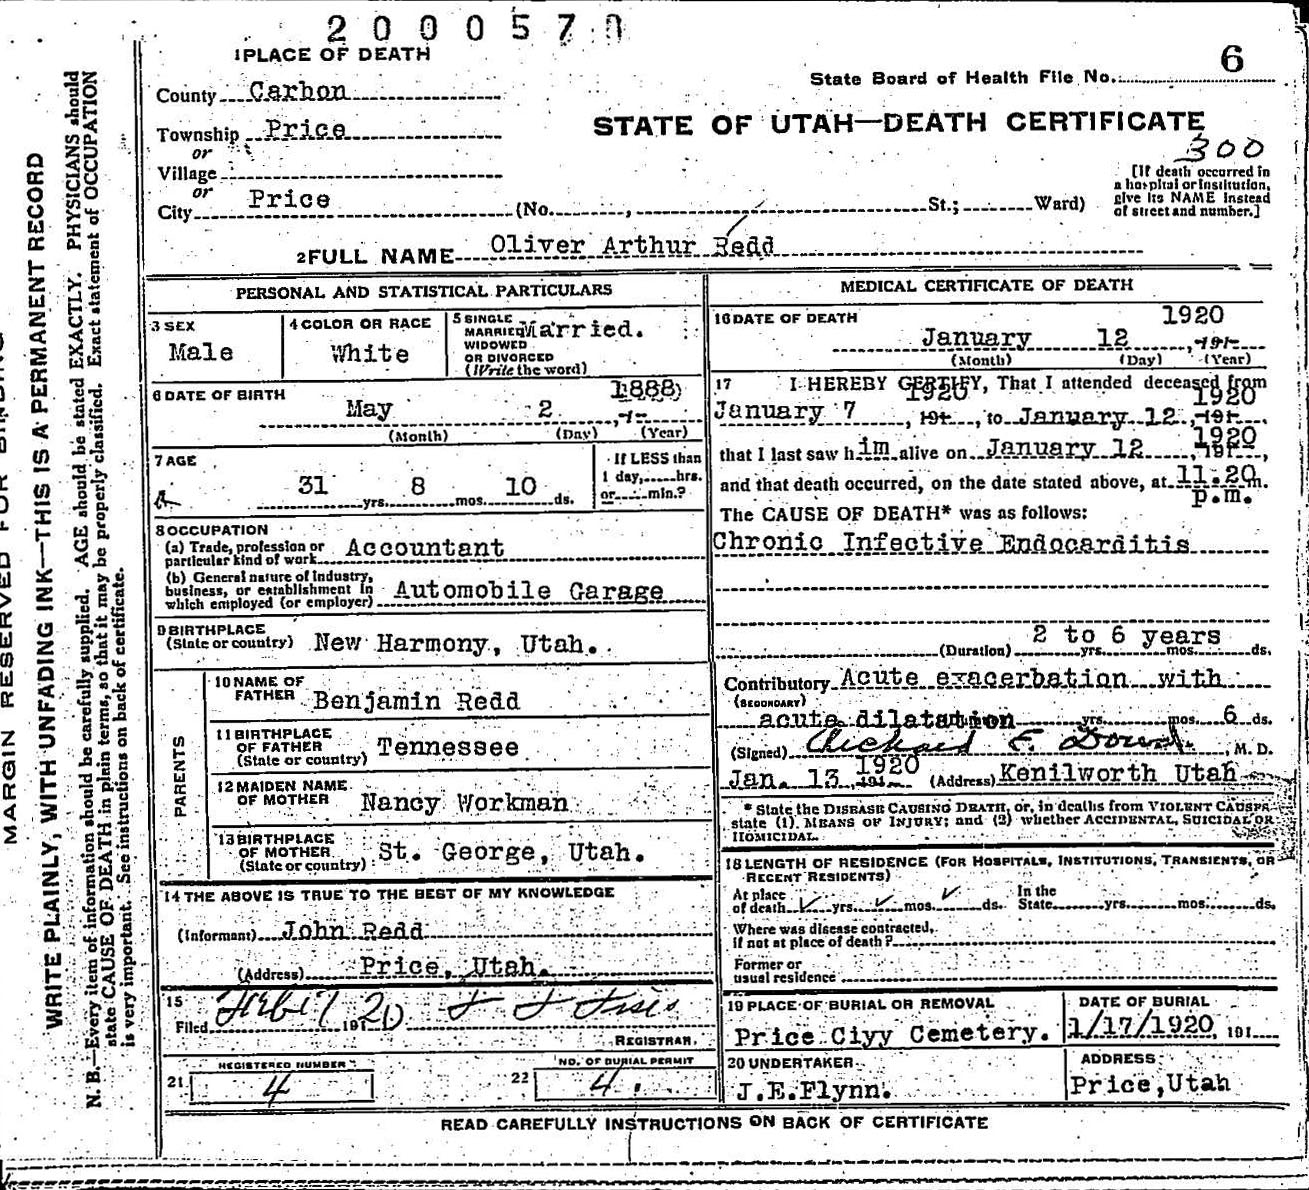 2 0 0 0 5 7 0
1 PLACE OF DEATH
State Board of Health File No. 6
County Carbon
Township Price
or
Village
or
City Price (No. , St.; Ward)
STATE OF UTAH—DEATH CERTIFICATE
300
[If death occurred in
a hospital or institution,
give its NAME instead
of street and number.]
2 FULL NAME Oliver Arthur Redd
PERSONAL AND STATISTICAL PARTICULARS
3 SEX
Male
4 COLOR OR RACE
White
5 SINGLE
MARRIED Married.
WIDOWED
OR DIVORCED
(Write the word)
6 DATE OF BIRTH 1888
May 2 , 1
(Month) (Day) (Year)
7 AGE
31 yrs. 8 mos. 10 ds.
If LESS than
1 day, hrs.
or min.?
8 OCCUPATION
(a) Trade, profession or
particular kind of work Accountant
(b) General nature of Industry,
business, or establishment in
which employed (or employer) Automobile Garage
9 BIRTHPLACE
(State or country) New Harmony, Utah.
PARENTS
10 NAME OF
FATHER Benjamin Redd
11 BIRTHPLACE
OF FATHER
(State or country) Tennessee
12 MAIDEN NAME
OF MOTHER Nancy Workman
13 BIRTHPLACE
OF MOTHER
(State or country) St. George, Utah.
14 THE ABOVE IS TRUE TO THE BEST OF MY KNOWLEDGE
(Informant) John Redd
(Address) Price, Utah.
15
Filed 191 20
REGISTRAR
REGISTERED NUMBER
21 4
NO. OF BURIAL PERMIT
22 4.
MEDICAL CERTIFICATE OF DEATH
16 DATE OF DEATH 1920
January 12 , 191
(Month) (Day) (Year)
17 I HEREBY CERTIFY, That I attended deceased from
1920 1920
January 7 , 191 , to January 12 , 191
1920
that I last saw him alive on January 12 , 191 ,
and that death occurred, on the date stated above, at 11.20 m.
p.m.
The CAUSE OF DEATH* was as follows:
Chronic Infective Endocarditis
2 to 6 years
(Duration) yrs. mos. ds.
Contributory Acute exacerbation with
(SECONDARY)
acute dilatation yrs. mos. 6 ds.
(Signed) E. , M. D.
1920
Jan. 13 191 (Address) Kenilworth Utah
* State the DISEASE CAUSING DEATH, or, in deaths from VIOLENT CAUSES
state (1) MEANS OF INJURY; and (2) whether ACCIDENTAL, SUICIDAL OR
HOMICIDAL.
18 LENGTH OF RESIDENCE (FOR HOSPITALS, INSTITUTIONS, TRANSIENTS, OR
RECENT RESIDENTS)
At place
of death yrs. mos. ds.
In the
State yrs. mos. ds.
Where was disease contracted,
if not at place of death?
Former or
usual residence
19 PLACE OF BURIAL OR REMOVAL
Price Ciyy Cemetery.
DATE OF BURIAL
1/17/1920, 191
20 UNDERTAKER
J.E.Flynn.
ADDRESS
Price,Utah
READ CAREFULLY INSTRUCTIONS ON BACK OF CERTIFICATE
MARGIN RESERVED FOR BINDING
WRITE PLAINLY, WITH UNFADING INK—THIS IS A PERMANENT RECORD
N. B.—Every item of information should be carefully supplied. AGE should be stated EXACTLY. PHYSICIANS should
state CAUSE OF DEATH in plain terms, so that it may be properly classified. Exact statement of OCCUPATION
is very important. See instructions on back of certificate.